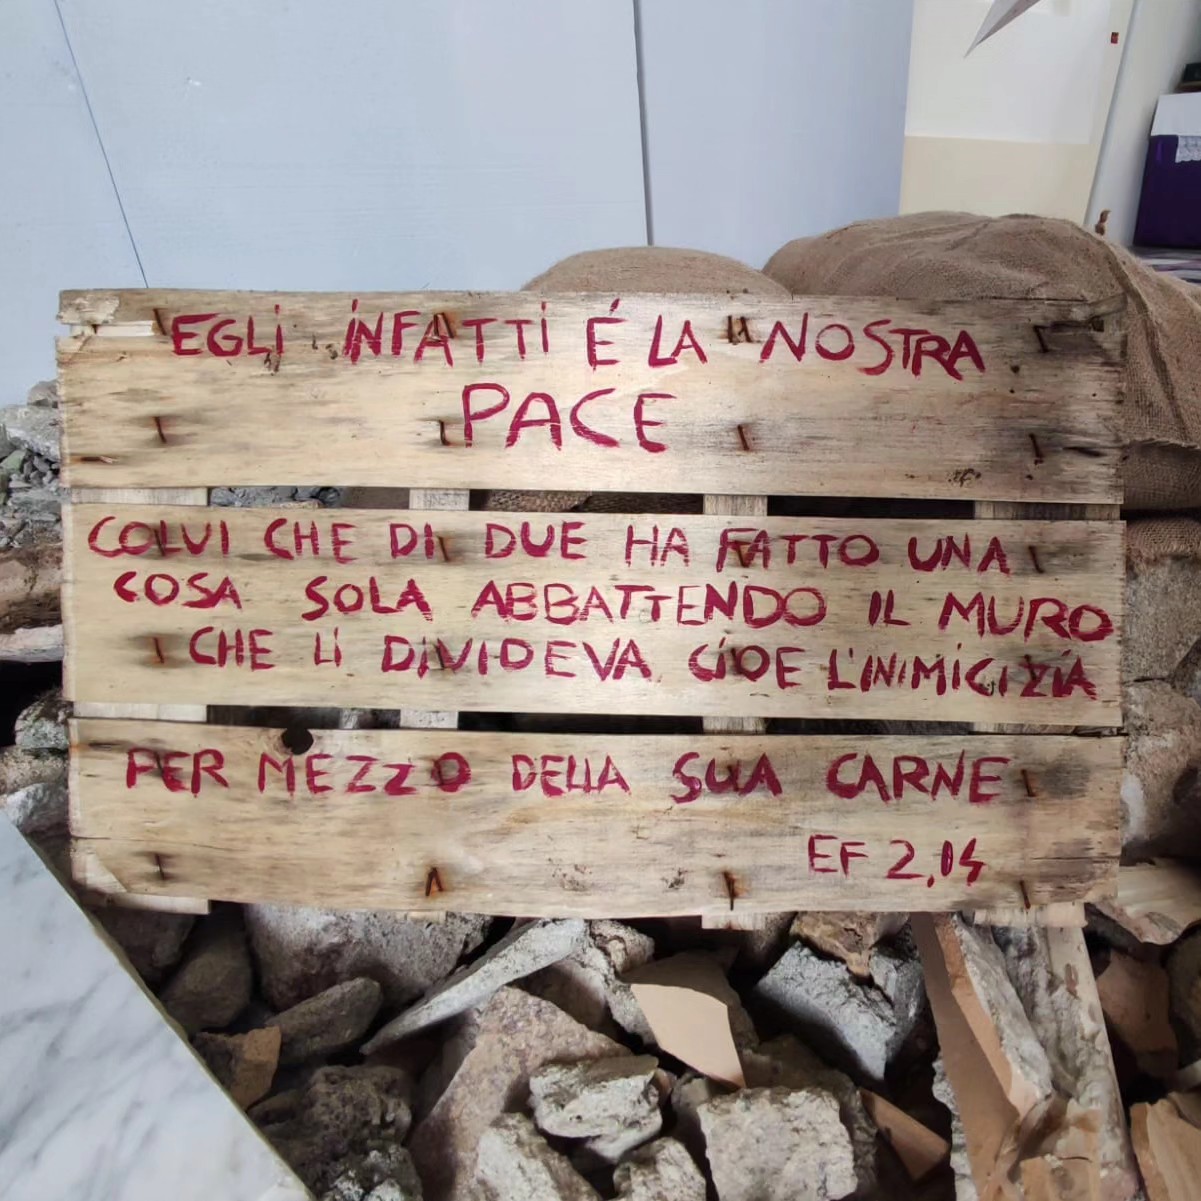 EGLI INFATTI É LA NOSTRA
PACE
COLUI CHE DI DUE HA FATTO UNA
COSA SOLA ABBATTENDO IL MURO
CHE LI DIVIDEVA CIOE L'INIMICIZIA
PER MEZZO DELLA SUA CARNE
EF 2,14